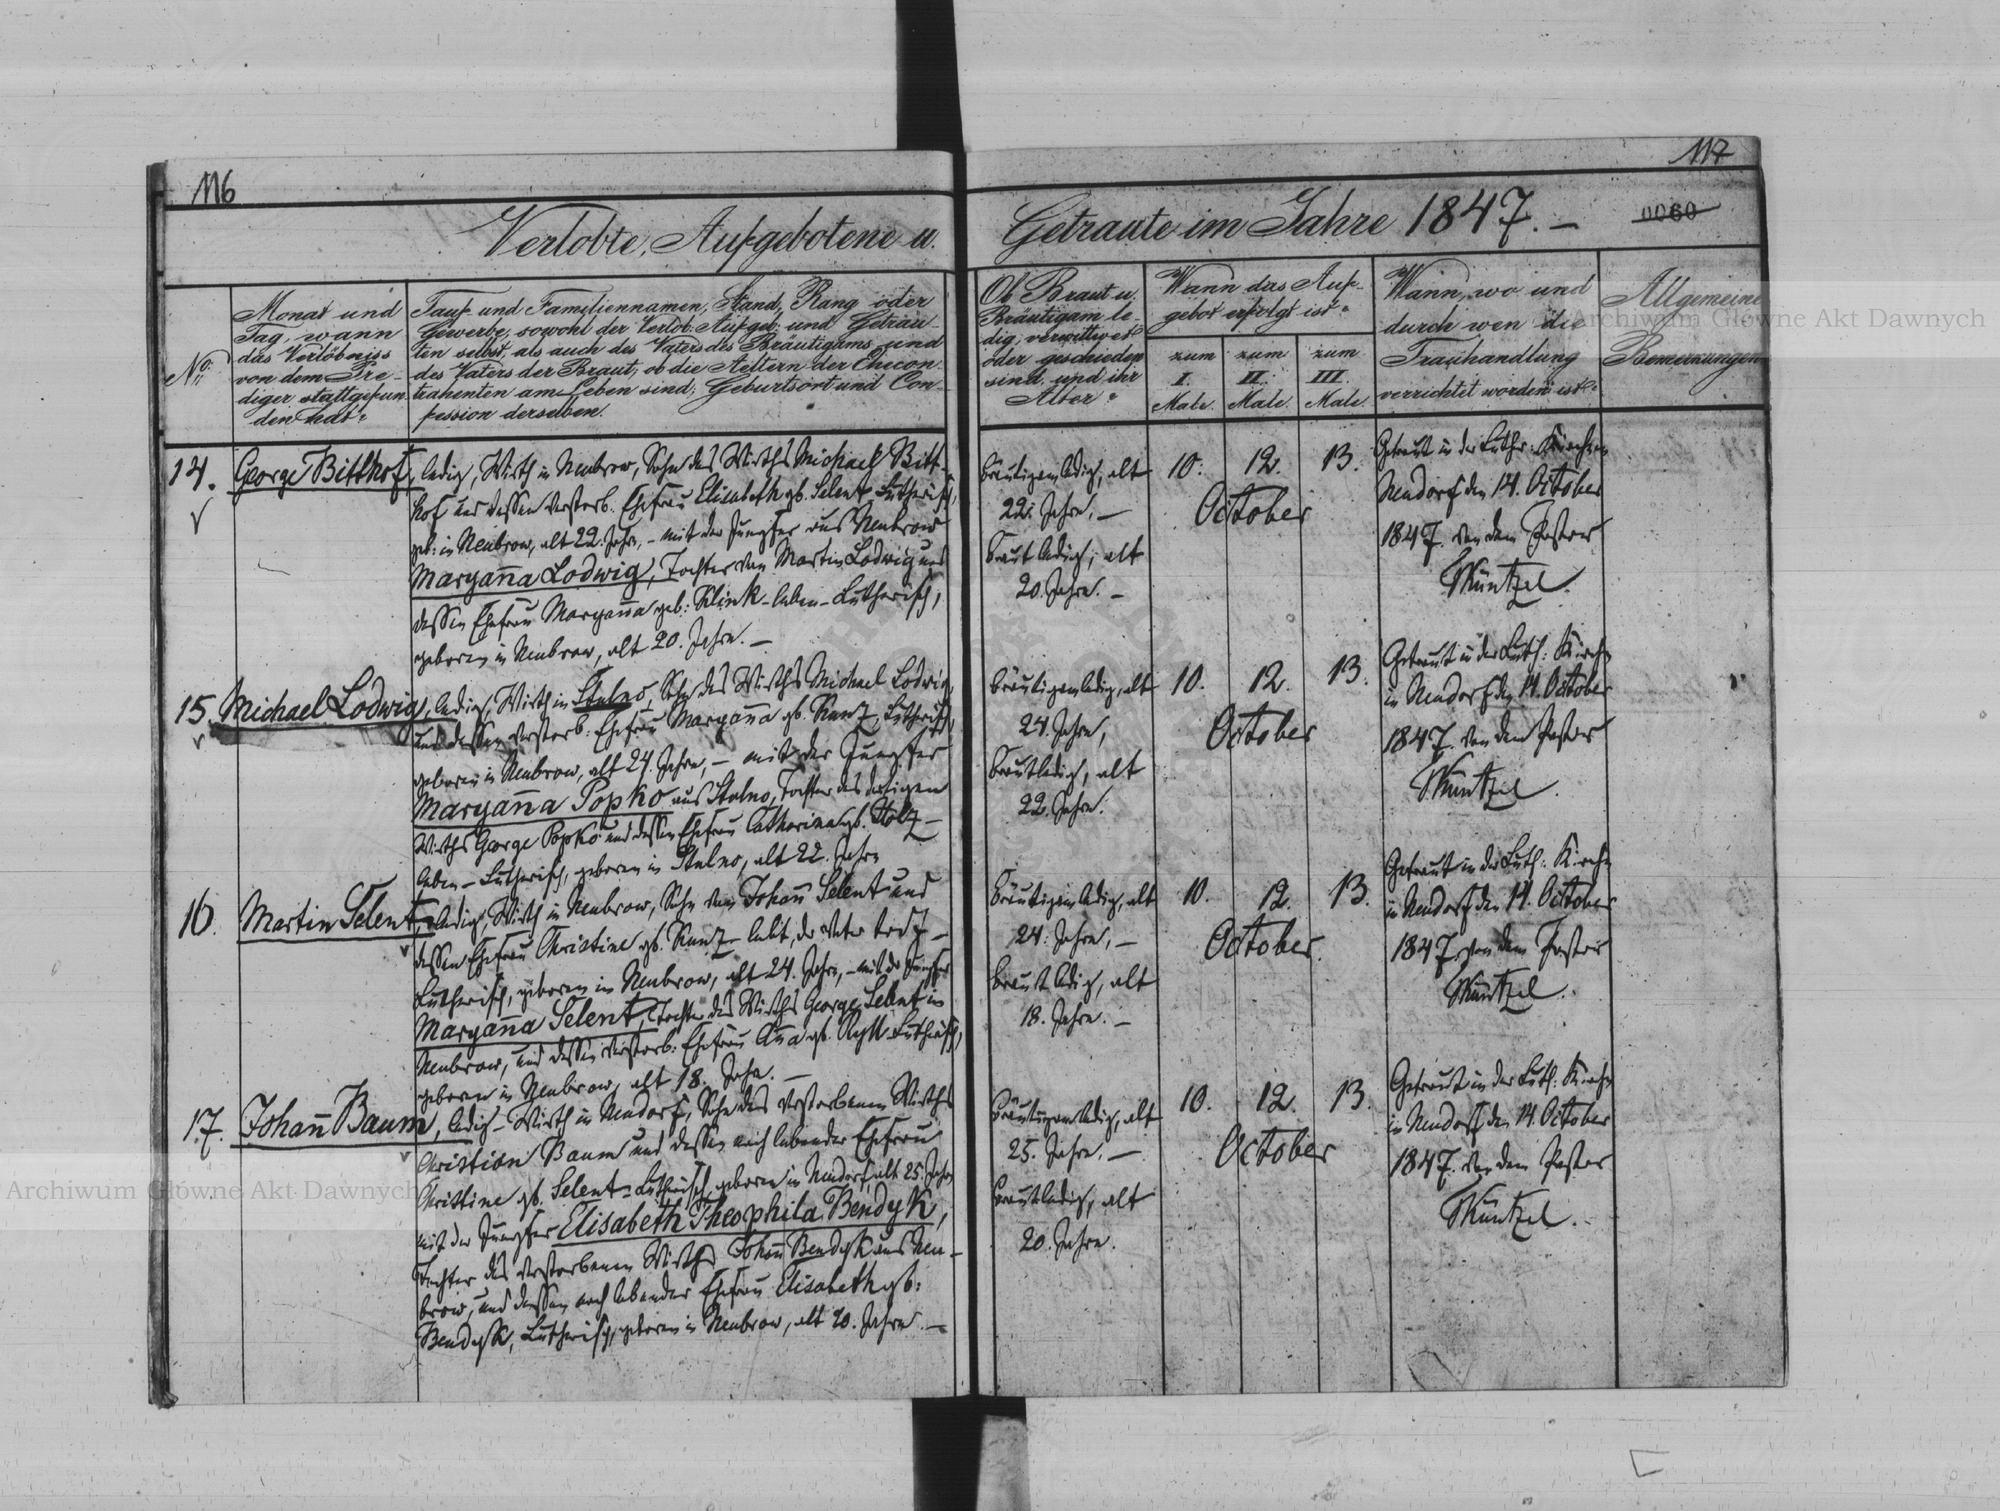 116
Verlobte, Aufgebotene u.
No.
Monat und
Tag, wann
das Verlöbniss
von dem Pre-
diger stattgefun
den hat.
Tauf und Familiennamen, Stand, Rang oder
Gewerbe, sowohl der Verlob: Aufgeb: und Getrau-
ten selbst, als auch des Vaters des Bräutigams und
des Vaters der Braut, ob die Aeltern der Ehecon-
trahenten am Leben sind; Geburtsort und Con-
fession derselben.
14. George Bitthof, ledig, Wirth in Neubrow, Sohn des Wirths Michael Bitt-
hof und dessen verstorb. Ehefrau Elisabeth gb. Selent, Lutherisch,
geb: in Neubrow, alt 22. Jahre, – mit der Jungfer aus Neubrow
Maryanna Lodwig, Tochter von Martin Lodwig und
dessen Ehefrau Maryanna geb: Klink – leben – Lutherisch,
geboren in Neubrow, alt 20. Jahre. –
15. Michael Lodwig, ledig, Wirth in Stulno, Sohn des Wirths Michael Lodwig,
und dessen verstorb: Ehefrau Maryanna gb. Kunz, Lutherisch,
geboren in Neubrow, alt 24. Jahre, – mit der Jungfer
Maryanna Popko aus Stulno, Tochter des dasigen
Wirths George Popko und dessen Ehefrau Catharina gb. Holz –
leben – Lutherisch, geboren in Stulno, alt 22. Jahre
16. Martin Selent, ledig, Wirth in Neubrow, Sohn von Johann Selent und
dessen Ehefrau Christine gb. Kunz – lebt, der Vater todt –
Lutherisch, geboren in Neubrow, alt 24. Jahre, – mit der Jungfer
Maryanna Selent, Tochter des Wirths George Selent in
Neubrow, und dessen verstorb: Ehefrau Anna gb. Lutherisch,
geboren in Neubrow, alt 18. Jahre. –
17. Johann Baum, ledig – Wirth in Neudorf, Sohn des verstorbenen Wirths
Christian Baum und dessen noch lebender Ehefrau
Christine gb. Selent – Lutherisch, geboren in Neudorf, alt 25. Jahre
mit der Jungfer Elisabeth Theophila Bendyk,
Tochter des verstorbenen Wirths Johann Bendyk aus Neu-
brow, und dessen noch lebender Ehefrau Elisabeth gb:
Bendyk, Lutherisch, geboren in Neubrow, alt 20. Jahre. –
117
Getraute im Jahre 1847. –
0060
Ob Braut u.
Bräutigam le-
dig, verwittwet
oder geschieden
sind, und ihr
Alter.
Wann das Auf-
gebot erfolgt ist.
zum zum zum
I. II. III.
Male. Male. Male.
Wann, wo und
durch wen die
Trauhandlung
verrichtet worden ist.
Allgemeine
Bemerkungen
Bräutigam ledig, alt
22. Jahre, –
Braut ledig, alt
20. Jahre. –
10. 12. 13.
October
Getraut in der Luther: Kirche in
Neudorf den 14. October
1847. von dem Pastor
Müntzel.
Bräutigam ledig, alt
24. Jahre,
Braut ledig, alt
22. Jahre.
10. 12. 13.
October
Getraut in der Luth: Kirche
in Neudorf den 14. October
1847. von dem Pastor
Müntzel.
Bräutigam ledig, alt
24. Jahre, –
Braut ledig, alt
18. Jahre. –
10. 12. 13.
October.
Getraut in der Luth: Kirche
in Neudorf den 14. October
1847. von dem Pastor
Müntzel.
Bräutigam ledig, alt
25. Jahre. –
Braut ledig, alt
20. Jahre.
10. 12. 13.
October
Getraut in der Luth: Kirche
in Neudorf den 14. October
1847. von dem Pastor
Müntzel.
Archiwum Główne Akt Dawnych
Archiwum Główne Akt Dawnych